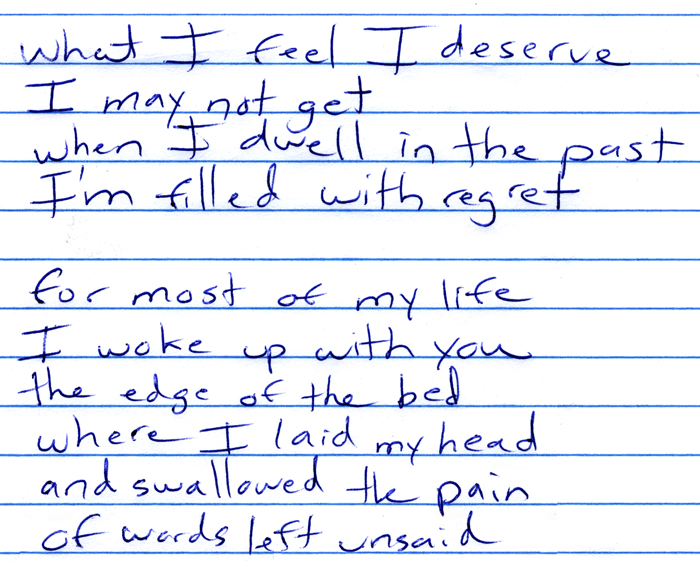 what I feel I deserve
I may not get
when I dwell in the past
I'm filled with regret
for most of my life
I woke up with you
the edge of the bed
where I laid my head
and swallowed the pain
of words left unsaid